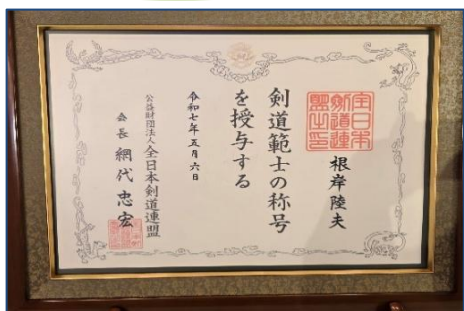 根岸陸夫
全日本
剣道連
盟之印
剣道範士の称号
を授与する
令和七年五月六日
公益財団法人全日本剣道連盟
会長 網代忠宏